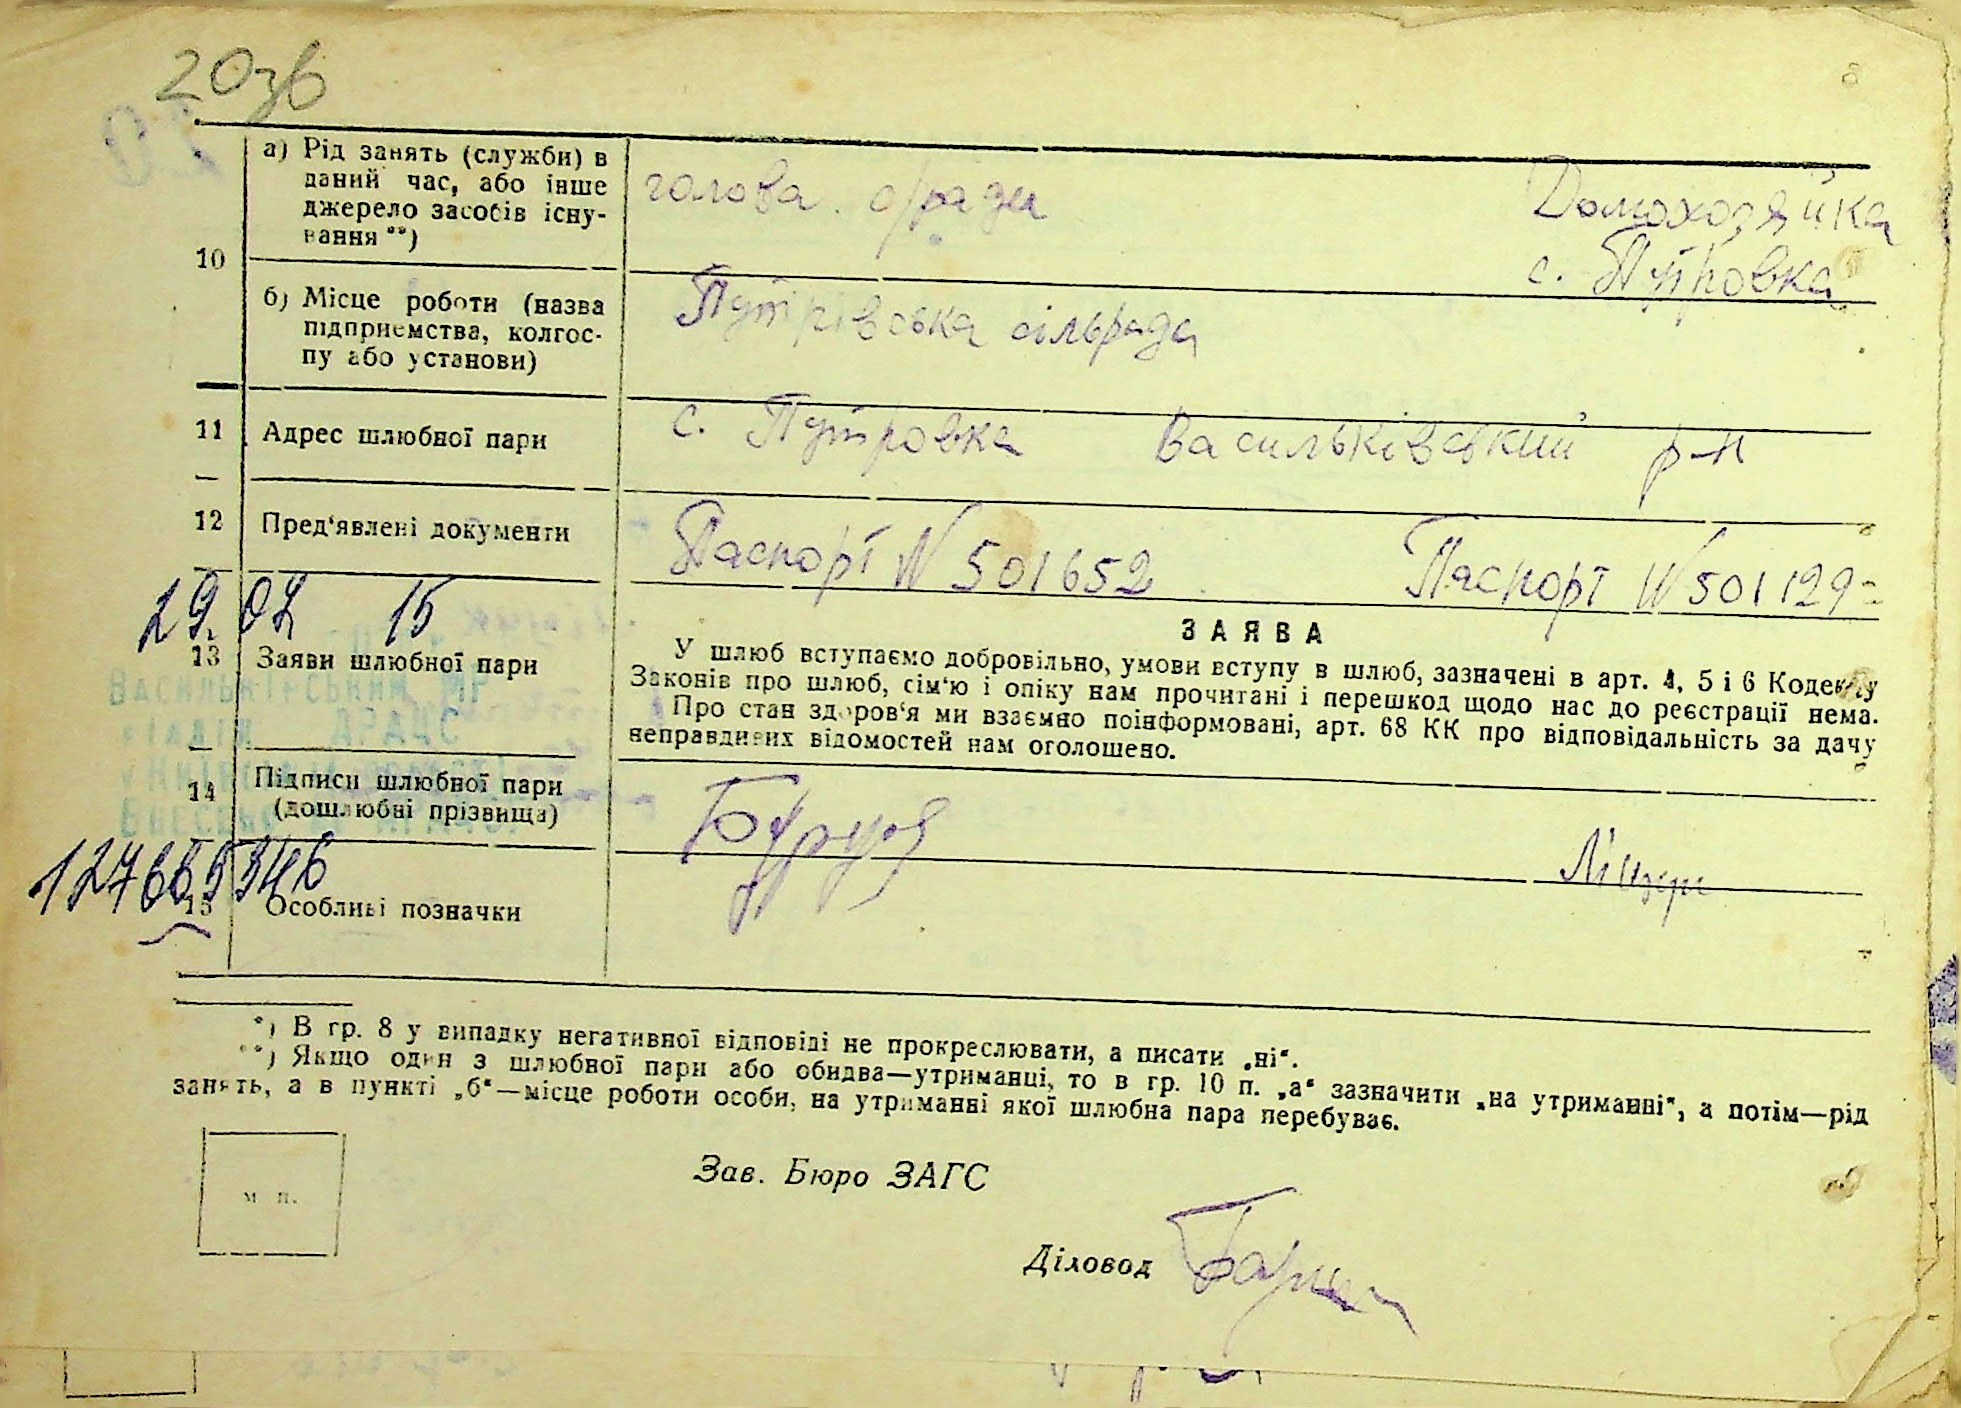 20зв
а) Рід занять (служби) в
даний час, або інше
джерело засобів існу-
вання **)
голова с/ради
Домохозяйка
10
с. Путровка
б) Місце роботи (назва
підприємства, колгос-
пу або установи)
Путрівська сільрада
11 Адрес шлюбної пари
с. Путровка Васильківський р-н
12 Пред'явлені документи
Паспорт N 501652
Паспорт N 501129
29.02 15
ЗАЯВА
13 Заяви шлюбної пари
У шлюб вступаємо добровільно, умови вступу в шлюб, зазначені в арт. 4, 5 і 6 Кодексу
Законів про шлюб, сім'ю і опіку нам прочитані і перешкод щодо нас до реєстрації нема.
Про стан здоров'я ми взаємно поінформовані, арт. 68 КК про відповідальність за дачу
неправдивих відомостей нам оголошено.
Васильківський МР
відділ ДРАЦС
14 Підписи шлюбної пари
(дошлюбні прізвища)
15 Особливі позначки
*) В гр. 8 у випадку негативної відповіді не прокреслювати, а писати „ні“.
**) Якщо один з шлюбної пари або обидва—утриманці, то в гр. 10 п. „а“ зазначити „на утриманні“, а потім—рід
занять, а в пункті „б“—місце роботи особи, на утриманні якої шлюбна пара перебуває.
м п.
Зав. Бюро ЗАГС
Діловод